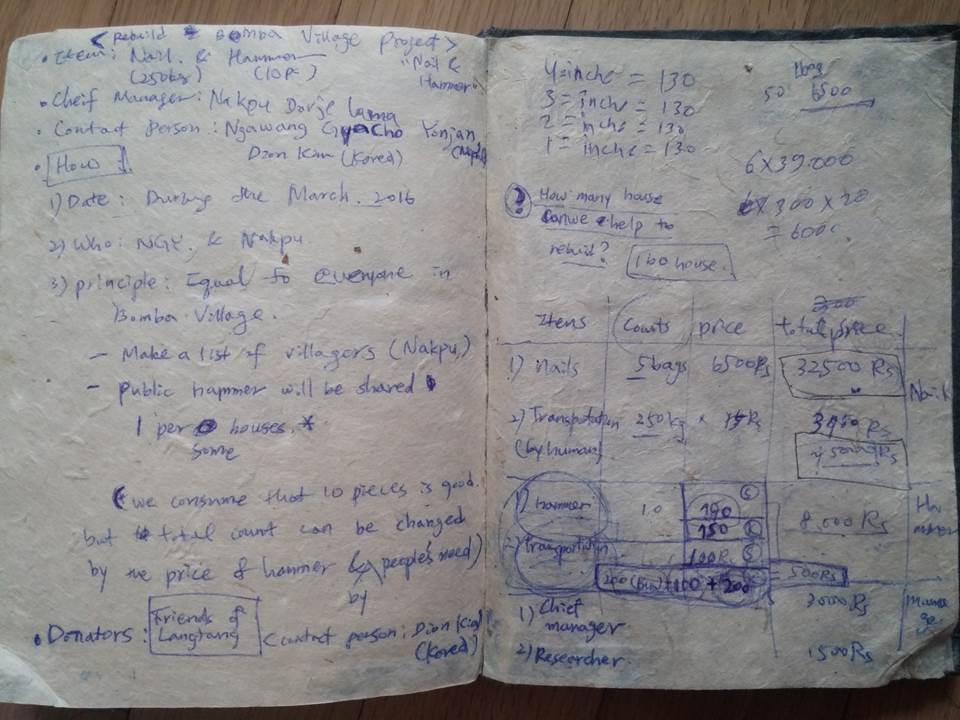 < Rebuild Bomba Village Project >
• Item: Nail. & Hammer "Nail &
(250kg) (10Pc) Hammer"
• Cheif Manager: Nakpu Dorje Lama
• Contact Person: Ngawang Gyacho Yonjan
Dion Kim (Korea)
• How
1) Date: During the March. 2016
2) Who: NGY. & Nakpu
3) principle: Equal to everyone in
Bomba Village.
- Make a list of villagers (Nakpu)
- public hammer will be shared
1 per houses. *
some
(we consume that 10 pieces is good.
but total count can be changed
by the price of hammer & people's need)
by
• Donators: Friends of
Langtang < Contact person: Dion Kim
(Korea)
4=inche = 130
3=inche = 130
2=inche = 130
1=inche = 130
1bag
50 6500
6 x 39.000
x 300 x 20
= 6000
? How many house
can we help to
rebuid?
160 house.
Itens Counts price total price
1) Nails 5bags 6500Rs 32500 Rs
2) Transportation 250kg × 15Rs
(by human)
1) hammer 10 8,000 Rs
150
2) Transportation 100Rs
+ 200 = 500Rs
1) Chief
manager 3000Rs
2) Researcher. 1500Rs